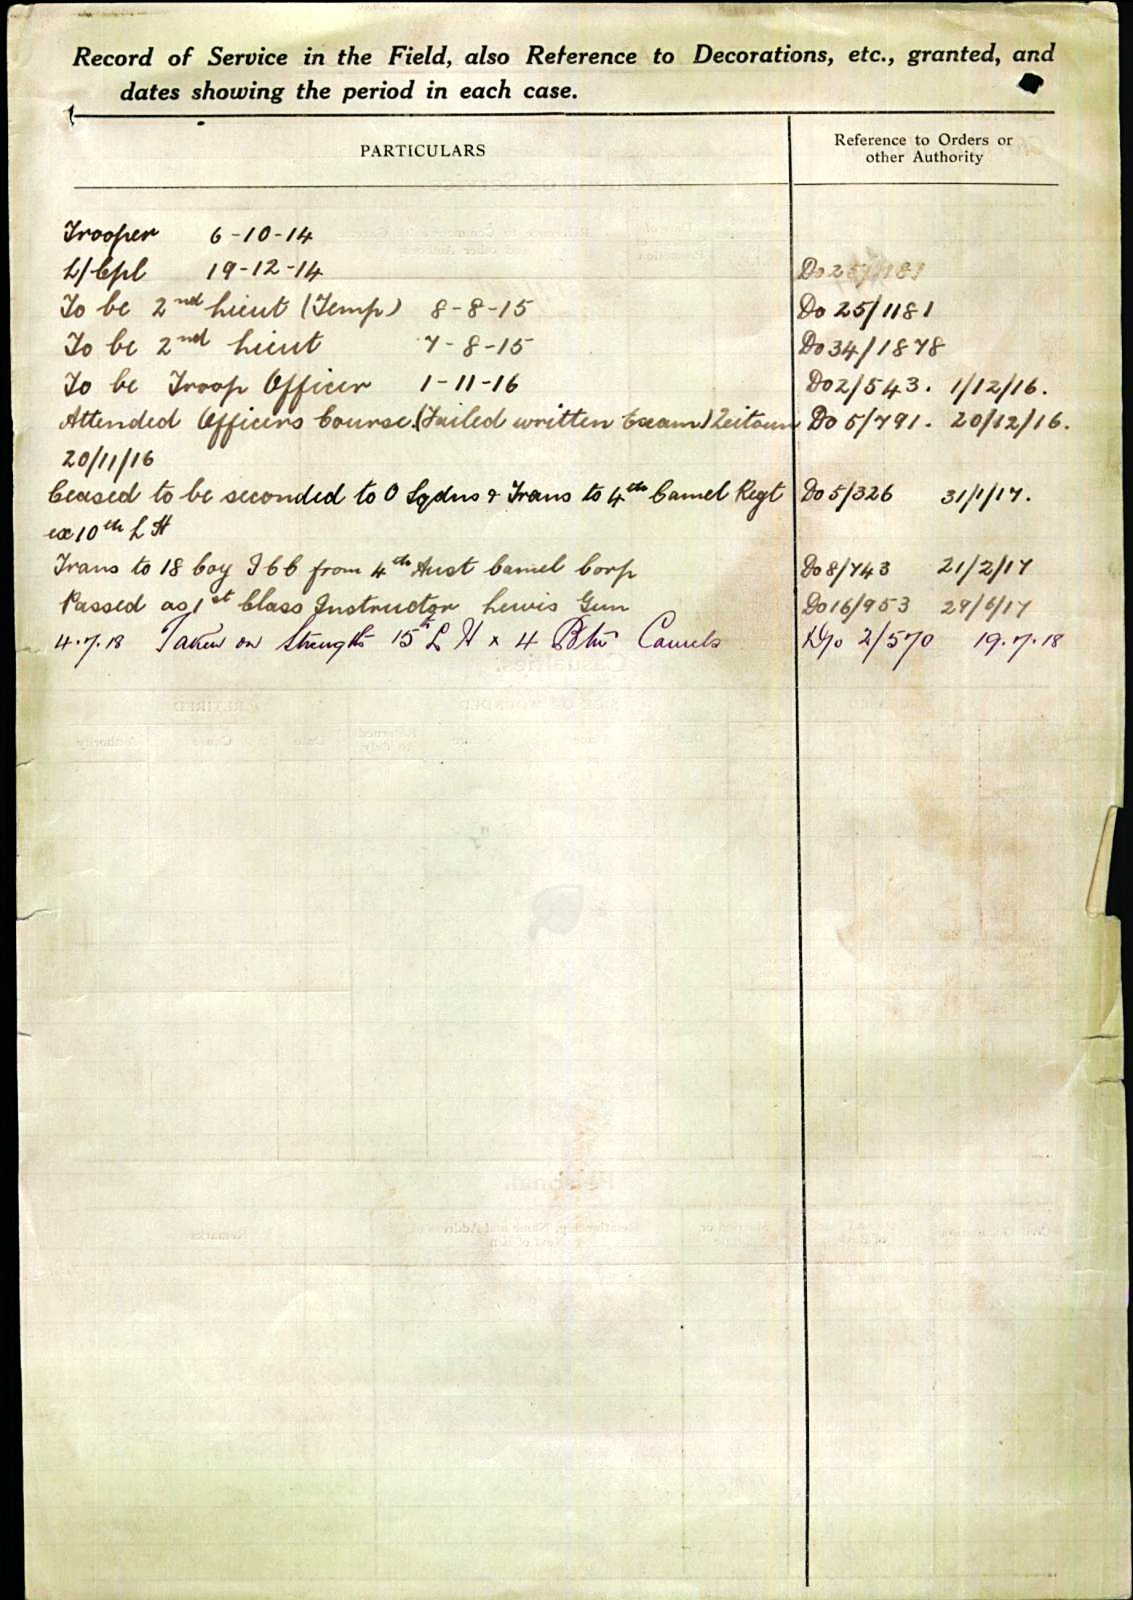 Record of Service in the Field, also Reference to Decorations, etc., granted, and
dates showing the period in each case.
PARTICULARS
Reference to Orders or
other Authority
Trooper 6-10-14
L/Cpl 19-12-14 Do 25/1181
To be 2nd Lieut (Temp) 8-8-15 Do 25/1181
To be 2nd Lieut 7-8-15 Do 34/1878
To be Troop Officer 1-11-16 Do 2/543. 1/12/16.
Attended Officers Course (Failed written Exam) Zeitoun Do 5/791. 20/12/16.
20/11/16
Ceased to be seconded to O Sqdns & Trans to 4th Camel Regt Do 5/326 31/1/17.
ex 10th L H
Trans to 18 Coy ICC from 4th Aust Camel Corp Do 8/743 21/2/17
Passed as 1st Class Instructor Lewis Gun Do 16/953 29/6/17
4.7.18 Taken on Strength 15th L H x 4 Btn Camels D/o 2/570 19.7.18
Casualties.
RETIRED
Personal.
Remarks